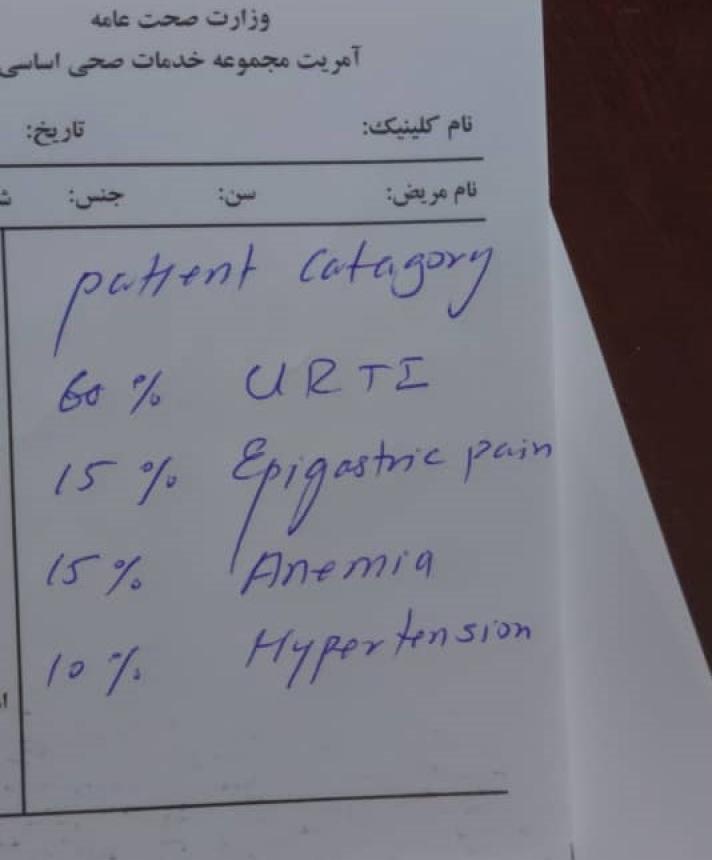 وزارت صحت عامه
آمریت مجموعه خدمات صحی اساسی
نام کلینیک: تاریخ:
نام مریض: سن: جنس:
patient Catagory
60 % URTI
15 % Epigastric pain
15 % Anemia
10 % Hypertension